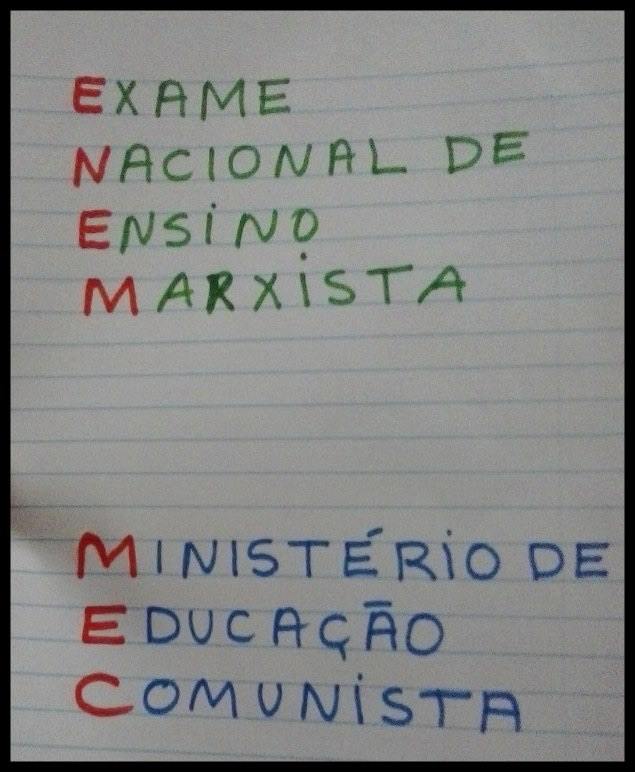 EXAME
NACIONAL DE
ENSINO
MARXISTA
MINISTÉRIO DE
EDUCAÇÃO
COMUNISTA